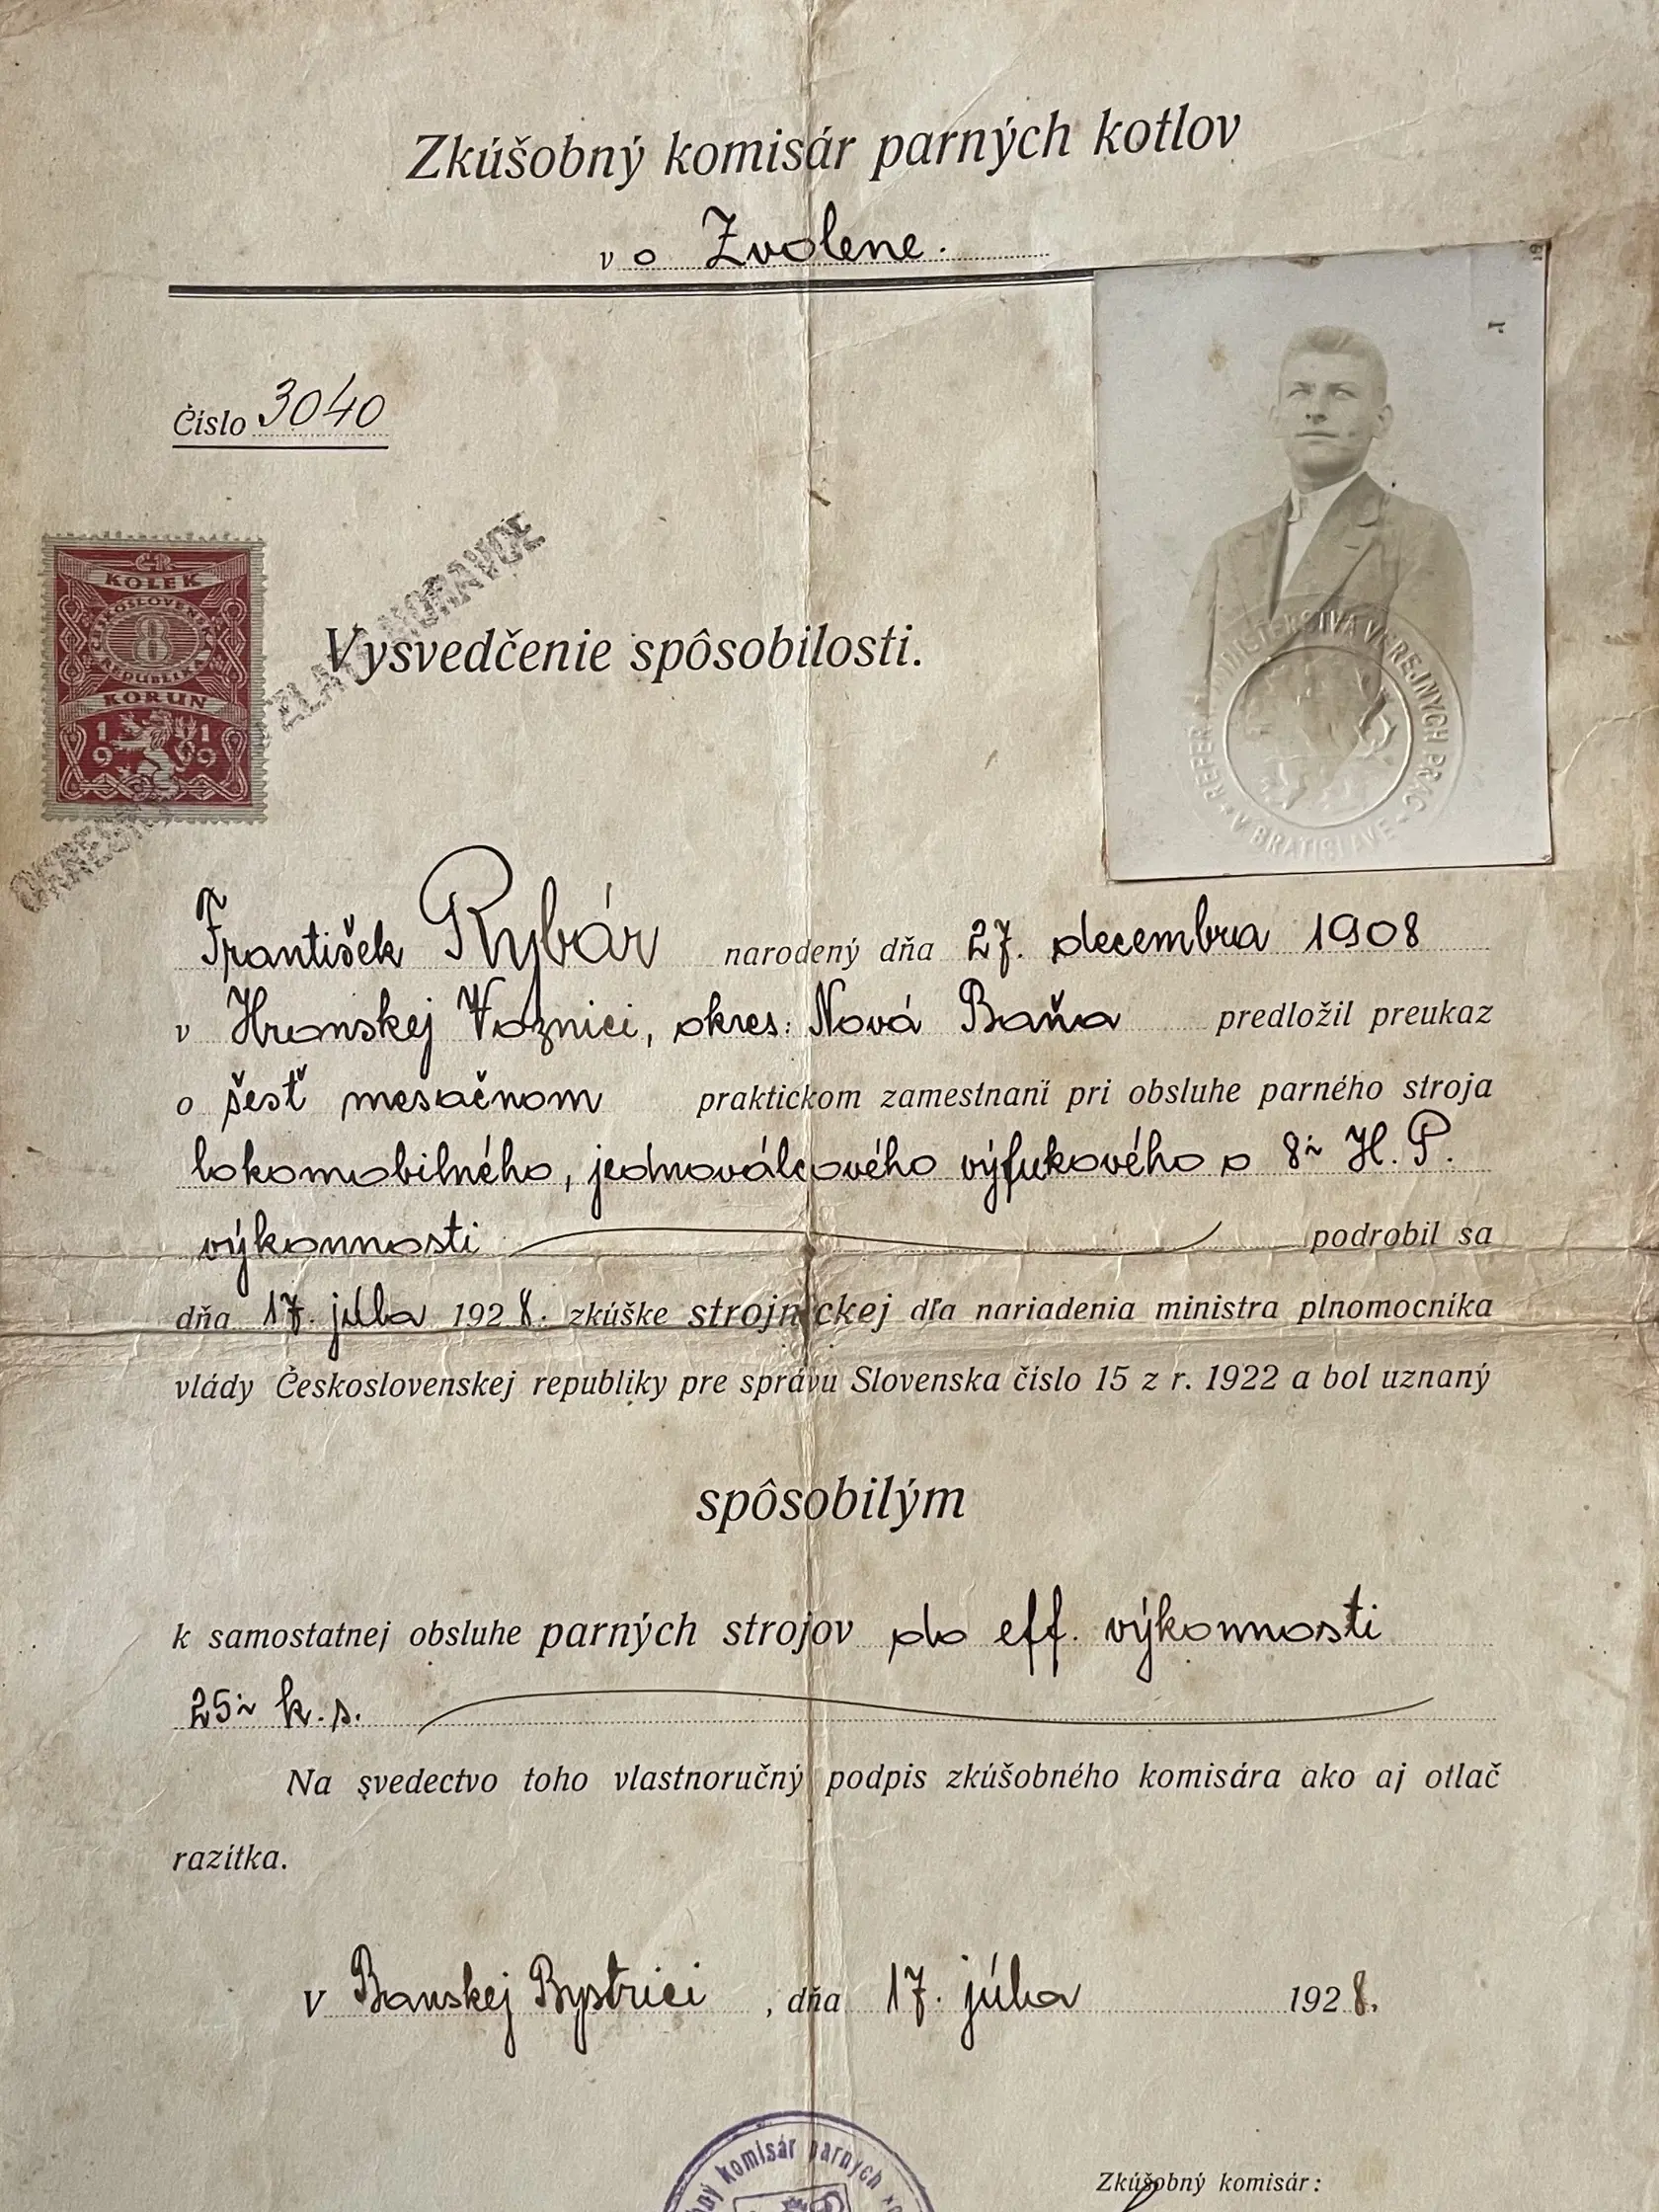 Zkúšobný komisár parných kotlov
v o Zvolene.
Číslo 3040
ČR
KOLEK
ČESKOSLOVENSKÁ REPUBLIKA
8
KORUN
1919
ZLATÉ MORAVCE
Vysvedčenie spôsobilosti.
REFERÁT MINISTERSTVA VEREJNÝCH PRÁC V BRATISLAVE
František Rybár narodený dňa 27. decembra 1908
v Hronskej Voznici, okres: Nová Baňa predložil preukaz
o šesť mesačnom praktickom zamestnaní pri obsluhe parného stroja
lokomobilného, jednoválcového výfukového o 8~ H. P.
výkonnosti podrobil sa
dňa 17. júla 1928. zkúške strojníckej dľa nariadenia ministra plnomocníka
vlády Československej republiky pre správu Slovenska číslo 15 z r. 1922 a bol uznaný
spôsobilým
k samostatnej obsluhe parných strojov do eff. výkonnosti
25~ k. s.
Na svedectvo toho vlastnoručný podpis zkúšobného komisára ako aj otlač
razítka.
v Banskej Bystrici, dňa 17. júla 1928.
komisár parných
Zkúšobný komisár: